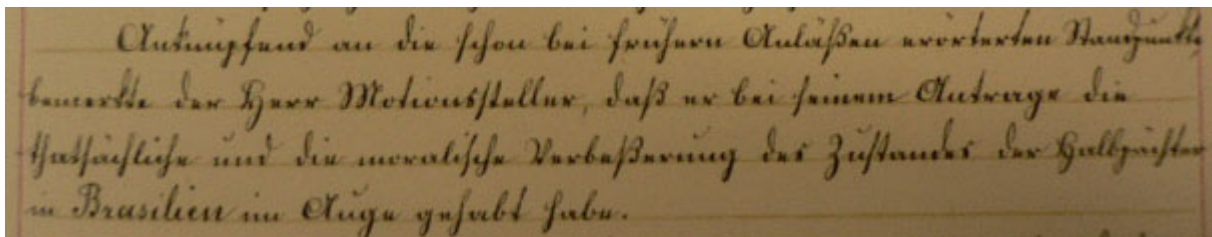 Anknüpfend an die schon bei frühern Anläßen erörterten Standpunkte,
bemerkte der Herr Motionssteller, daß er bei seinem Antrage die
thatsächliche und die moralische Verbeßerung des Zustandes der Halbpächter
in Brasilien im Auge gehabt habe.